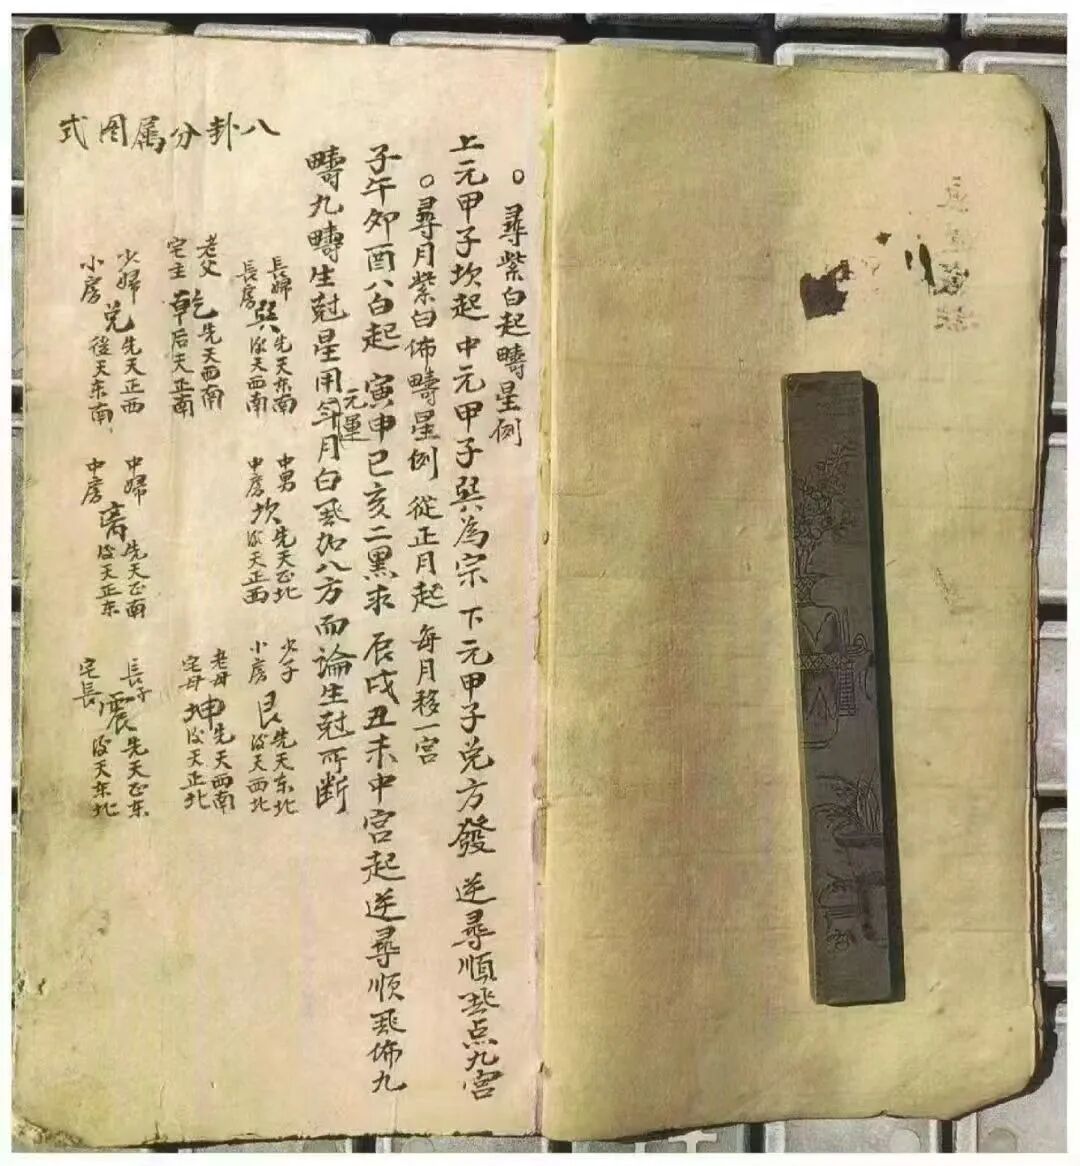 。尋紫白起疇星例
上元甲子坎起 中元甲子巽為宗 下元甲子兌方發 逆尋順飛点九宮
。尋月紫白佈疇星例 從正月起 每月移一宮
子午卯酉八白起 寅申巳亥二黑求 辰戌丑未中宮起逆尋順飛佈九
疇九疇生尅星用年月白飛加八方而論生尅所断
元運
八卦分属图式
長婦 先天东南
長房 巽 後天西南
老父 先天西南
宅主 乾 后天正南
少婦 先天正西
小房 兌 後天东南
中男 先天正北
中房 坎 後天正西
中婦 先天正南
中房 离 後天正东
少子 先天东北
小房 艮 後天西北
老母 先天西南
宅母 坤 後天正北
長子 先天正东
宅長 震 後天东北